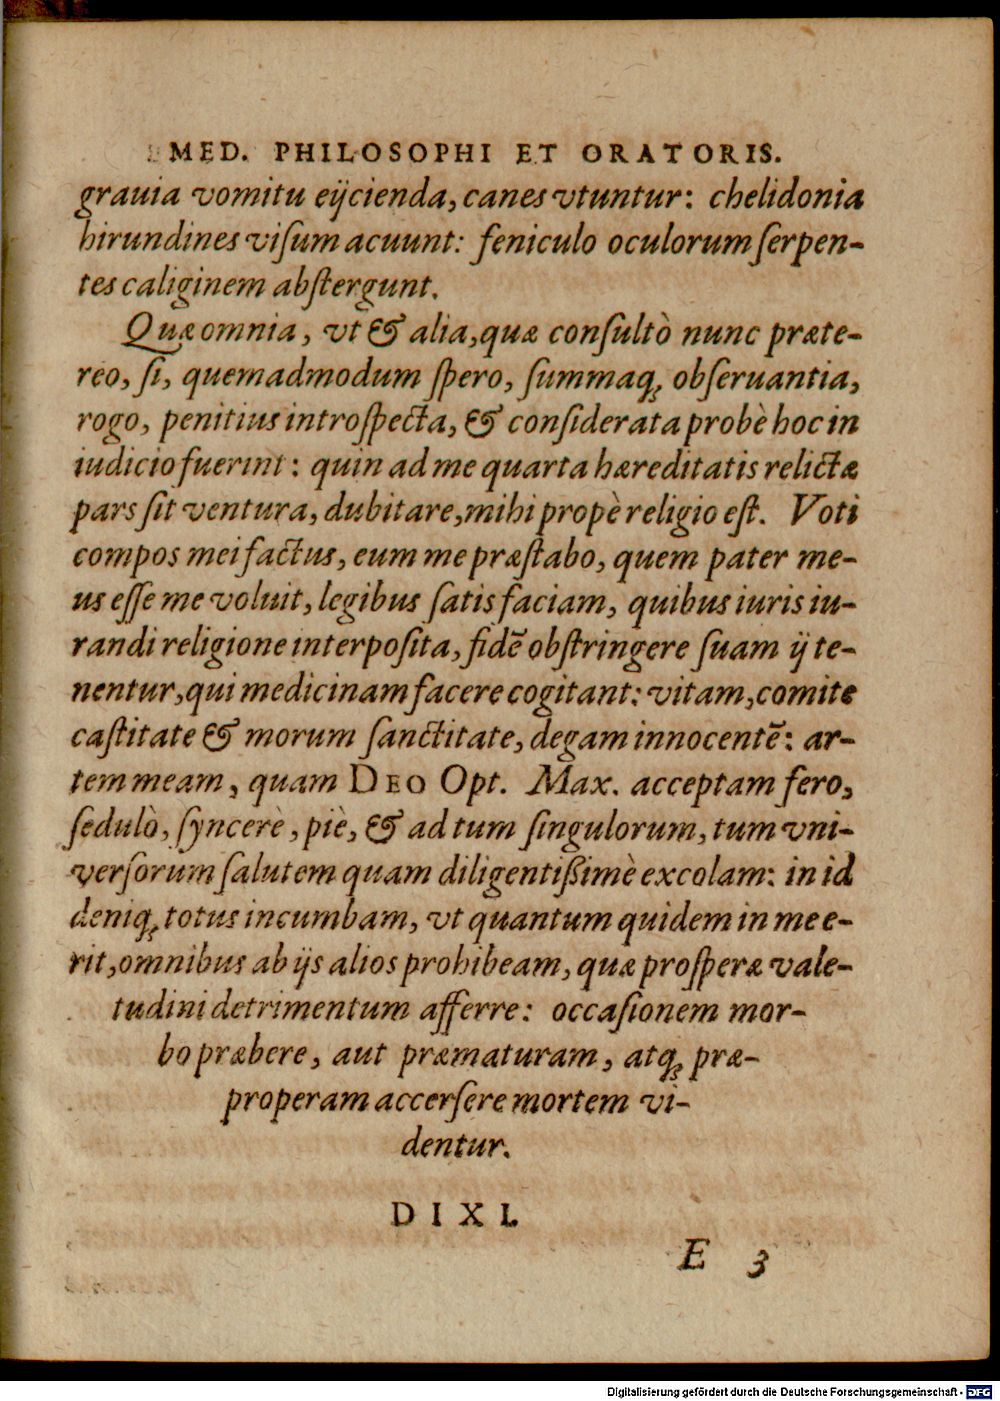 MED. PHILOSOPHI ET ORATORIS.
grauia vomitu eijcienda, canes vtuntur: chelidonia
hirundines viſum acuunt: feniculo oculorum ſerpen-
tes caliginem abſtergunt.
Quæ omnia, vt & alia, quæ conſultò nunc præte-
reo, ſi, quemadmodum ſpero, ſummaq́; obſeruantia,
rogo, penitius introſpecta, & conſiderata probè hoc in
iudicio fuerint: quin ad me quarta hæreditatis relictæ
pars ſit ventura, dubitare, mihi propè religio eſt. Voti
compos mei factus, eum me præſtabo, quem pater me-
us eſſe me voluit, legibus ſatis faciam, quibus iuris iu-
randi religione interpoſita, fidē obſtringere ſuam ij te-
nentur, qui medicinam facere cogitant: vitam, comite
caſtitate & morum ſanctitate, degam innocentē: ar-
tem meam, quam DEO Opt. Max. acceptam fero,
ſedulò, ſyncerè, piè, & ad tum ſingulorum, tum vni-
verſorum ſalutem quam diligentißimè excolam: in id
deniq; totus incumbam, vt quantum quidem in me e-
rit, omnibus ab ijs alios prohibeam, quæ proſperæ vale-
tudini detrimentum afferre: occaſionem mor-
bo præbere, aut præmaturam, atq; præ-
properam accerſere mortem vi-
dentur.
DIXI.
E 3
Digitalisierung gefördert durch die Deutsche Forschungsgemeinschaft - DFG